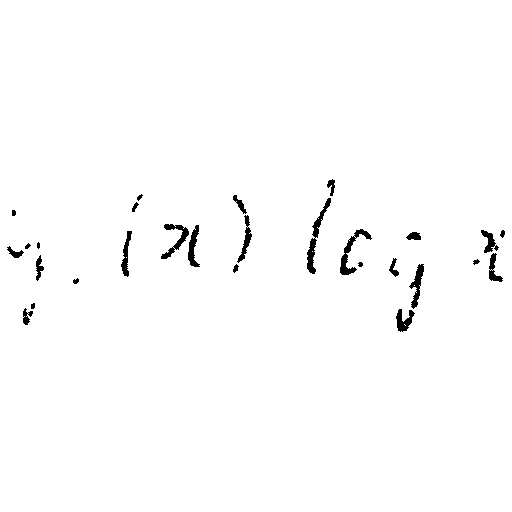 y. (x) log x